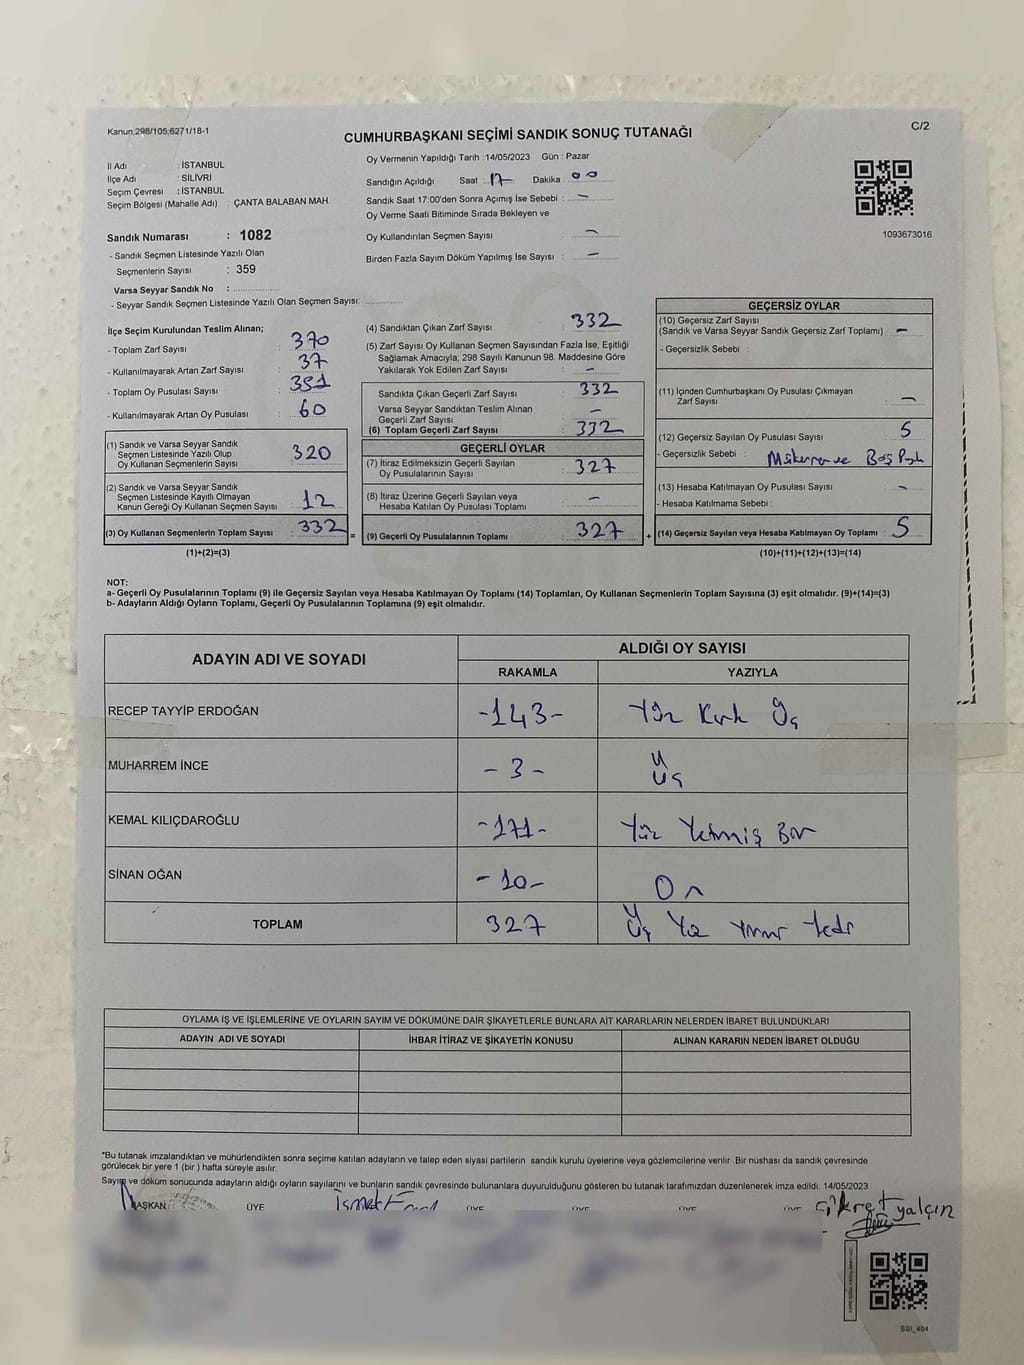 Kanun:298/105;6271/18-1
C/2
CUMHURBAŞKANI SEÇİMİ SANDIK SONUÇ TUTANAĞI
İl Adı : İSTANBUL
İlçe Adı : SİLİVRİ
Seçim Çevresi : İSTANBUL
Seçim Bölgesi (Mahalle Adı) : ÇANTA BALABAN MAH.
Sandık Numarası : 1082
- Sandık Seçmen Listesinde Yazılı Olan
Seçmenlerin Sayısı : 359
Varsa Seyyar Sandık No :
- Seyyar Sandık Seçmen Listesinde Yazılı Olan Seçmen Sayısı:
Oy Vermenin Yapıldığı Tarih : 14/05/2023 Gün : Pazar
Sandığın Açıldığı Saat : 17 Dakika : 00
Sandık Saat 17:00'den Sonra Açımış İse Sebebi : -
Oy Verme Saati Bitiminde Sırada Bekleyen ve
Oy Kullandırılan Seçmen Sayısı : -
Birden Fazla Sayım Döküm Yapılmış İse Sayısı : -
1093673016
İlçe Seçim Kurulundan Teslim Alınan;
- Toplam Zarf Sayısı : 370
- Kullanılmayarak Artan Zarf Sayısı : 37
- Toplam Oy Pusulası Sayısı : 391
- Kullanılmayarak Artan Oy Pusulası : 60
(1) Sandık ve Varsa Seyyar Sandık
Seçmen Listesinde Yazılı Olup
Oy Kullanan Seçmenlerin Sayısı : 320
(2) Sandık ve Varsa Seyyar Sandık
Seçmen Listesinde Kayıtlı Olmayan
Kanun Gereği Oy Kullanan Seçmen Sayısı : 12
(3) Oy Kullanan Seçmenlerin Toplam Sayısı : 332 =
(1)+(2)=(3)
(4) Sandıktan Çıkan Zarf Sayısı : 332
(5) Zarf Sayısı Oy Kullanan Seçmen Sayısından Fazla İse, Eşitliği
Sağlamak Amacıyla, 298 Sayılı Kanunun 98. Maddesine Göre
Yakılarak Yok Edilen Zarf Sayısı : -
Sandıkta Çıkan Geçerli Zarf Sayısı : 332
Varsa Seyyar Sandıktan Teslim Alınan
Geçerli Zarf Sayısı : -
(6) Toplam Geçerli Zarf Sayısı : 332
GEÇERLİ OYLAR
(7) İtiraz Edilmeksizin Geçerli Sayılan
Oy Pusulalarının Sayısı : 327
(8) İtiraz Üzerine Geçerli Sayılan veya
Hesaba Katılan Oy Pusulası Toplamı : -
(9) Geçerli Oy Pusulalarının Toplamı : 327 +
GEÇERSİZ OYLAR
(10) Geçersiz Zarf Sayısı
(Sandık ve Varsa Seyyar Sandık Geçersiz Zarf Toplamı) : -
- Geçersizlik Sebebi :
(11) İçinden Cumhurbaşkanı Oy Pusulası Çıkmayan
Zarf Sayısı : -
(12) Geçersiz Sayılan Oy Pusulası Sayısı : 5
- Geçersizlik Sebebi : Boş
(13) Hesaba Katılmayan Oy Pusulası Sayısı : -
- Hesaba Katılmama Sebebi :
(14) Geçersiz Sayılan veya Hesaba Katılmayan Oy Toplamı : 5
(10)+(11)+(12)+(13)=(14)
NOT:
a- Geçerli Oy Pusulalarının Toplamı (9) ile Geçersiz Sayılan veya Hesaba Katılmayan Oy Toplamı (14) Toplamları, Oy Kullanan Seçmenlerin Toplam Sayısına (3) eşit olmalıdır. (9)+(14)=(3)
b- Adayların Aldığı Oyların Toplamı, Geçerli Oy Pusulalarının Toplamına (9) eşit olmalıdır.
ADAYIN ADI VE SOYADI
ALDIĞI OY SAYISI
RAKAMLA YAZIYLA
RECEP TAYYİP ERDOĞAN -143- Yüz Kırk Üç
MUHARREM İNCE -3- Üç
KEMAL KILIÇDAROĞLU -171- Yüz Yetmiş Bir
SİNAN OĞAN -10- On
TOPLAM 327 Üç Yüz Yirmi Yedi
OYLAMA İŞ VE İŞLEMLERİNE VE OYLARIN SAYIM VE DÖKÜMÜNE DAİR ŞİKAYETLERLE BUNLARA AİT KARARLARIN NELERDEN İBARET BULUNDUKLARI
ADAYIN ADI VE SOYADI İHBAR İTİRAZ VE ŞİKAYETİN KONUSU ALINAN KARARIN NEDEN İBARET OLDUĞU
*Bu tutanak imzalandıktan ve mühürlendikten sonra seçime katılan adayların ve talep eden siyasi partilerin sandık kurulu üyelerine veya gözlemcilerine verilir. Bir nüshası da sandık çevresinde
görülecek bir yere 1 (bir ) hafta süreyle asılır.
Sayım ve döküm sonucunda adayların aldığı oyların sayılarını ve bunların sandık çevresinde bulunanlara duyurulduğunu gösteren bu tutanak tarafımızdan düzenlenerek imza edildi. 14/05/2023
BAŞKAN ÜYE ÜYE ÜYE ÜYE ÜYE
Fikret yalçın
SGI_404